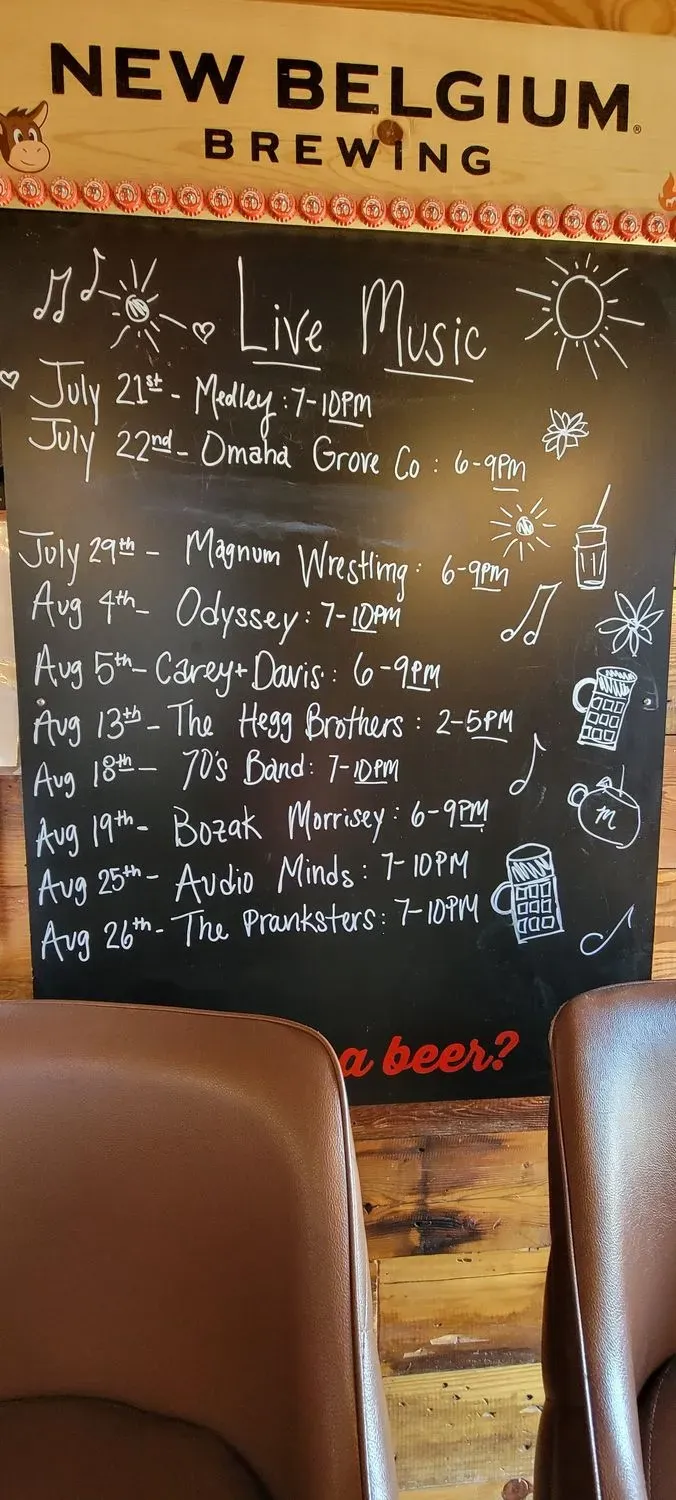 NEW BELGIUM®
BREWING
Live Music
July 21st - Medley : 7-10PM
July 22nd - Omaha Grove Co : 6-9PM
July 29th - Magnum Wrestling : 6-9PM
Aug 4th - Odyssey : 7-10PM
Aug 5th - Carey + Davis : 6-9PM
Aug 13th - The Hegg Brothers : 2-5PM
Aug 18th - 70's Band : 7-10PM
Aug 19th - Bozak Morrisey : 6-9PM
Aug 25th - Audio Minds : 7-10PM
Aug 26th - The Pranksters : 7-10PM
m
a beer?